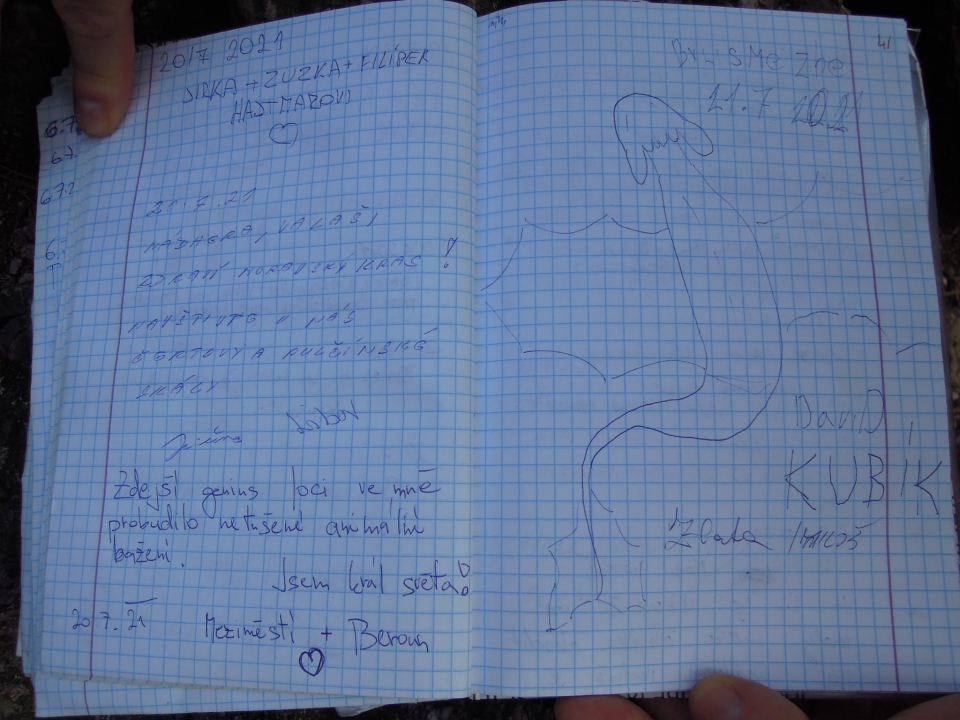 20/7 2021
JIRKA + ZUZKA + FILÍPEK
HAJTMAROVI
21.7.21
NÁDHERA, VALAŠI
ZDRAVÍ MORAVSKÝ KRAS!
NAVŠTIVTE U NÁS
ČERTOVY A PULČÍNSKÉ
SKÁLY
Zdejší genius loci ve mně
probudilo netušené animální
bažení.
Jsem král světa!
20/7. 21
Meziměstí + Beroun
6.7
67
67.2
6.
Byli SMe Zde
21.7 202
DaviD
KUBIK
Zlata